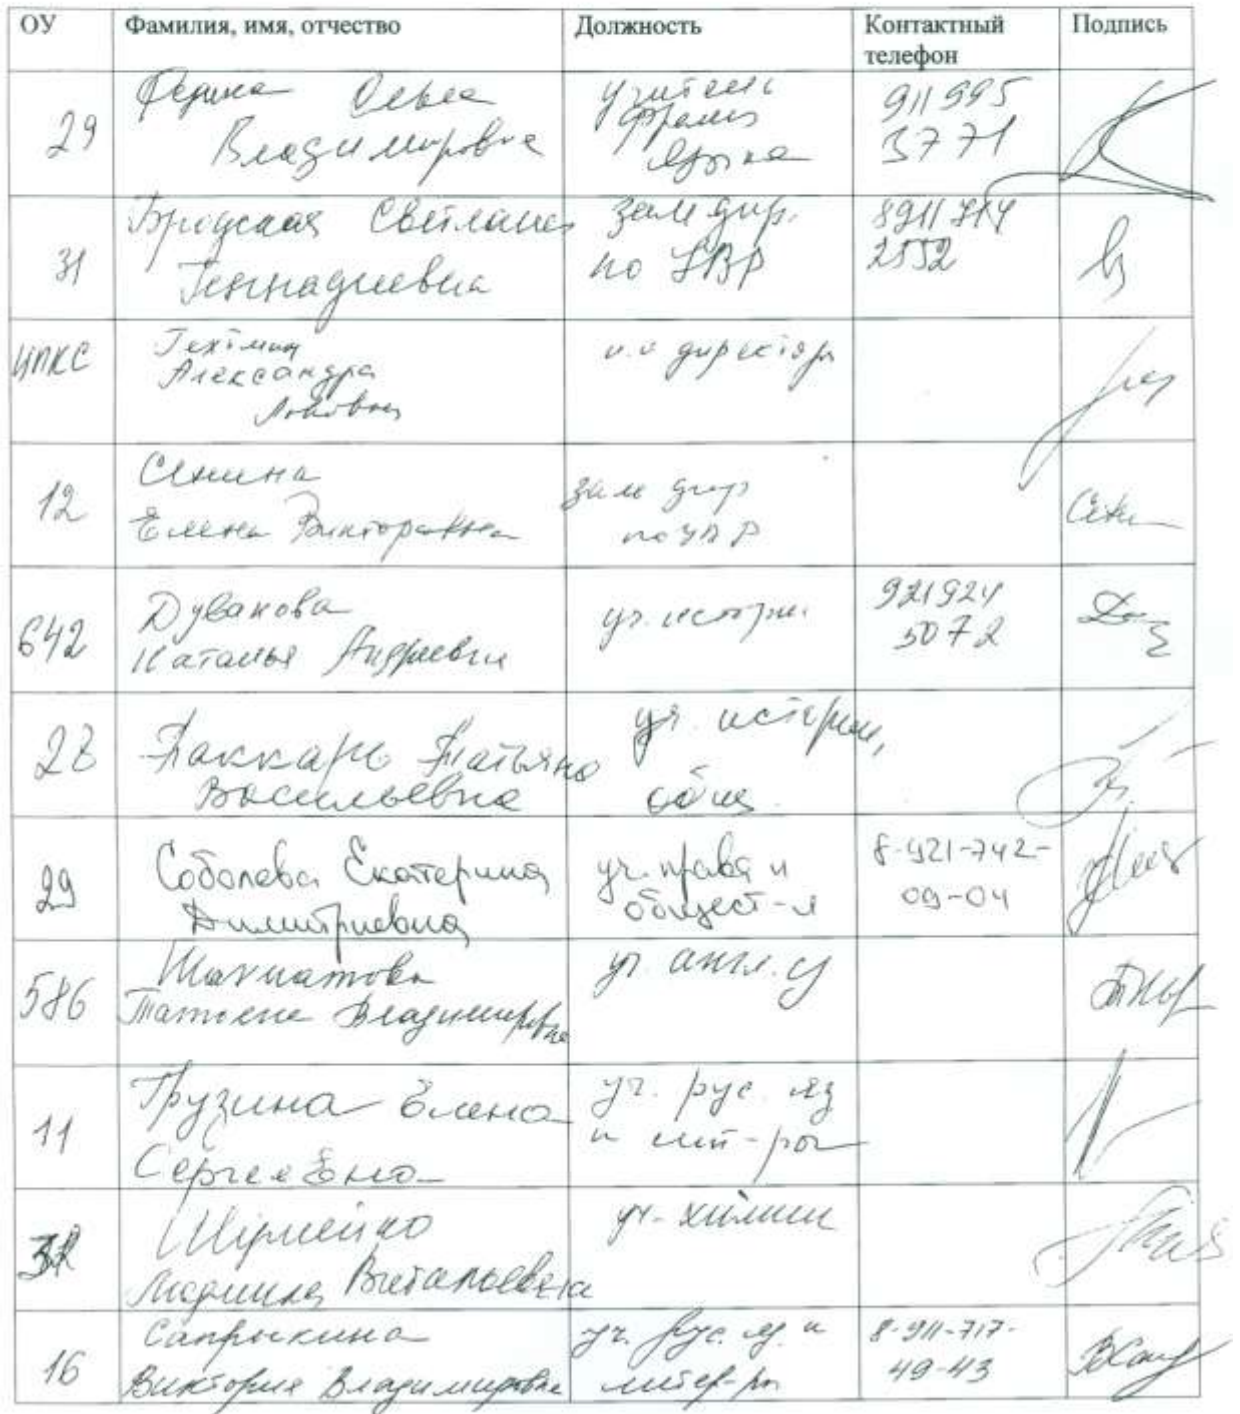 ОУ Фамилия, имя, отчество Должность Контактный телефон Подпись
29 Ольга Владимировна учитель франц языка 911 995 3771
31 Бродская Светлана Геннадиевна зам дир. по УВР 8911 714 2552
ЦПКС Гехтман Александра Львовна и.о директора
12 Сенина Елена Викторовна зам дир по УВР
642 Дувакова Наталья Андреевна уч. истории 921924 5072
28 Паккарь Татьяна Васильевна уч. истории, общ.
29 Соболева Екатерина Димитриевна уч. права и общест-я 8-921-742-09-04
586 Шахматова Татьяна Владимировна уч. англ. яз
11 Грузина Елена Сергеевна уч. рус. яз и лит-ры
Людмила Витальевна уч. химии
16 Сапрыкина Виктория Владимировна уч. рус. яз. и литер-ры 8-911-717-49-43